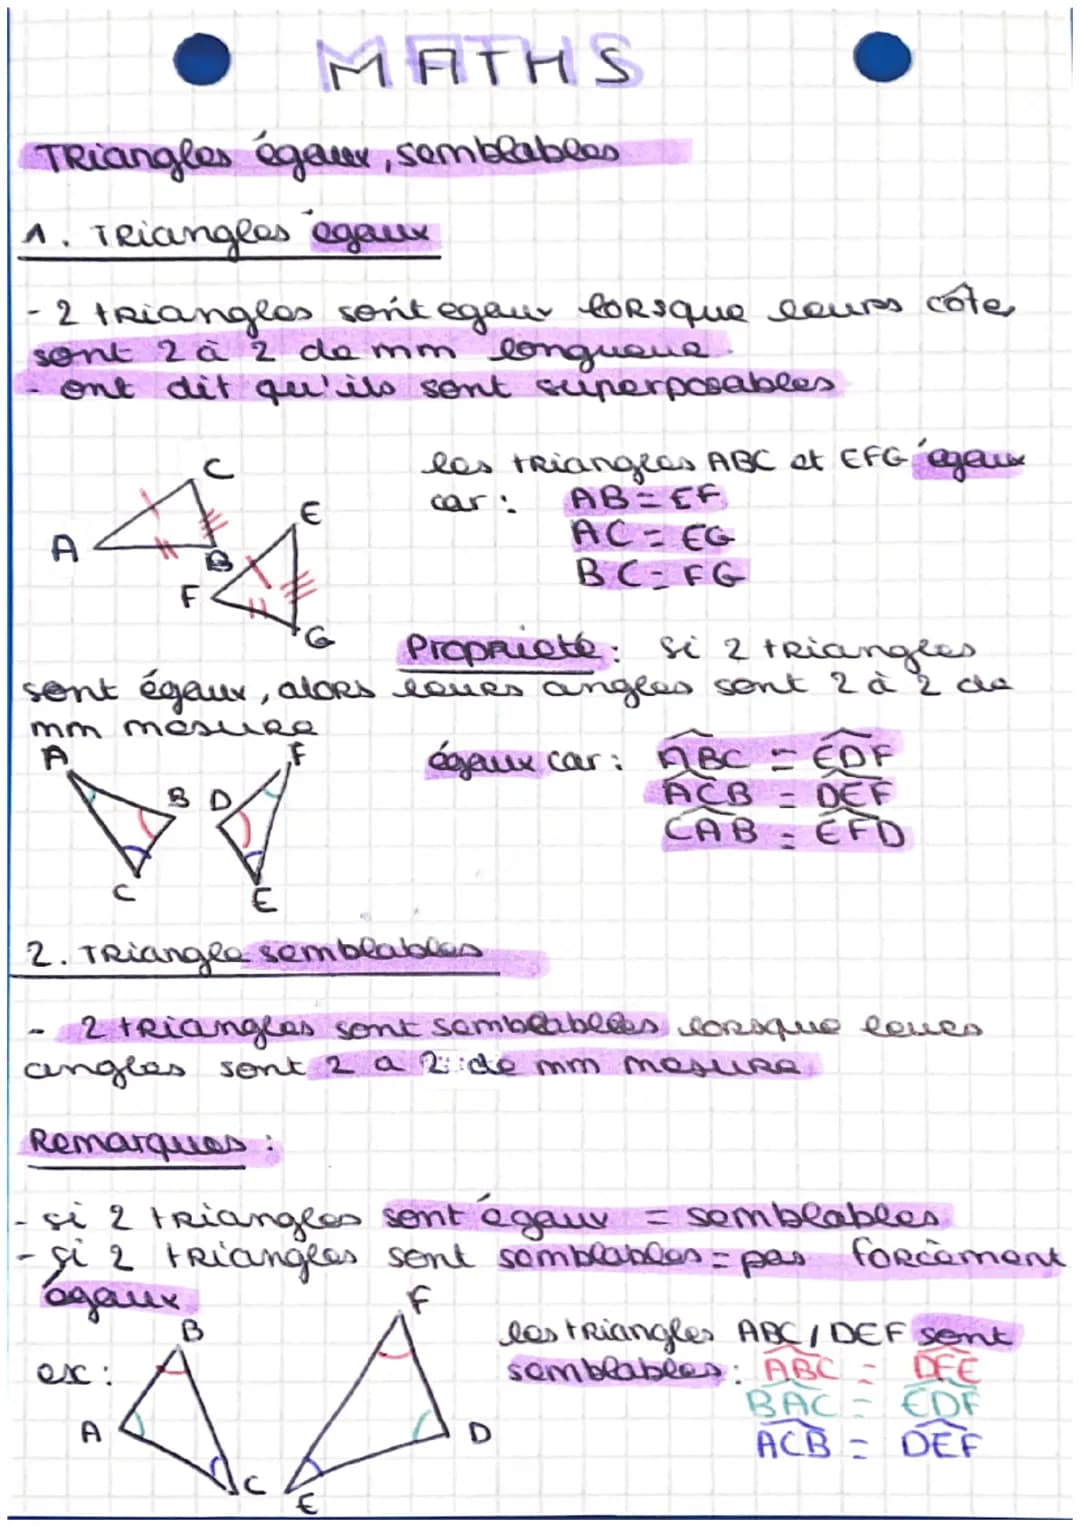 MATHS
TRiangles égaux, semblables
1. TRiangles égaux
- 2 tRiangles sont egaux loRsque leurs côtes
sont 2 à 2 de mm longueur.
- ont dit qu'ils sont superposables
C
les tRiangles ABC et EFG égaux
car : AB = EF
E
AC = EG
A
B
BC = FG
F
G
PropRieté : si 2 tRiangles
sont égaux, aloRs leuRs angles sont 2 à 2 de
mm mesuRe
A
F
égaux car : ABC = EDF
B D
ACB = DEF
CAB = EFD
C
E
2. TRiangle semblables
- 2 tRiangles sont semblables lorsque leurs
angles sont 2 a 2 de mm mesuRe
Remarques :
- si 2 tRiangles sont égaux = semblables
- si 2 tRiangles sont semblables = pas forcèment
égaux
F
B
les tRiangles ABC / DEF sont
ex :
semblables : ABC = DFE
BAC = EDF
A
D
ACB = DEF
C
E